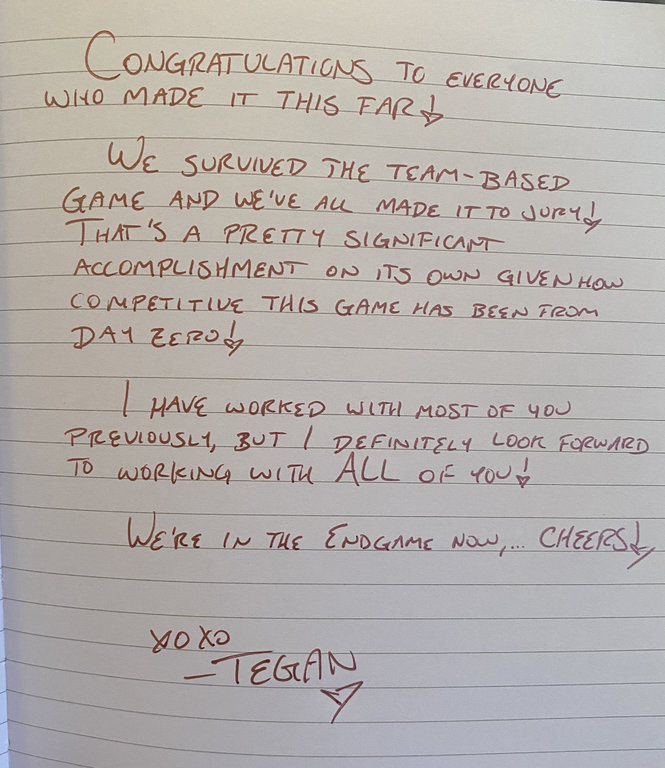 CONGRATULATIONS TO EVERYONE
WHO MADE IT THIS FAR!
WE SURVIVED THE TEAM-BASED
GAME AND WE'VE ALL MADE IT TO JURY!
THAT'S A PRETTY SIGNIFICANT
ACCOMPLISHMENT ON ITS OWN GIVEN HOW
COMPETITIVE THIS GAME HAS BEEN FROM
DAY ZERO!
I HAVE WORKED WITH MOST OF YOU
PREVIOUSLY, BUT I DEFINITELY LOOK FORWARD
TO WORKING WITH ALL OF YOU!
WE'RE IN THE ENDGAME NOW,... CHEERS!
XOXO
-TEGAN